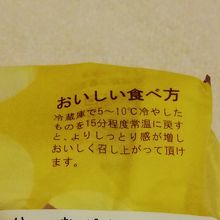 おいしい食べ方
冷蔵庫で5〜10℃冷やした
ものを15分程度常温に戻す
と、よりしっとり感が増し
おいしく召し上がって頂け
ます。